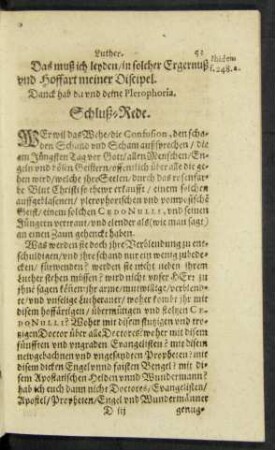 Luther. 51
Das muß ich leyden/ in solcher Ergernuß
vnd Hoffart meiner Discipel.
Ibidem
f. 248. a.
Danck hab du vnd deine Plerophoria.
Schluß-Rede.
WEr wil das Wehe/ die Confusion, den scha-
den Schand vnd Scham außsprechen / die
am Jüngsten Tag vor Gott/ allen Menschen/ En-
geln vnd bösen Geistern/ öffentlich über alle die ge-
hen werd/ welche jhre Seelen/ durch das rosenfar-
be Blut Christi so thewr erkaufft / einem solchen
auffgeblasenen/ plerophorischen vnd
Geist/ einem solchen CUDONULLI, vnd seinen
Jüngern vertraut/ vnd elender als (wie man sagt)
an einen Zaun gehenckt haben.
Was werden sie doch jhre Verblendung zu ent-
schuldigen/ vnd jhre schand nur ein wenig zubede-
cken/ fürwenden? werden sie nicht neben jhrem
Luther stehen müssen? wird nicht vnser HErr zu
jhne sagen können: jhr arme/ mutwillige/ verblen-
te/ vnd vnselige Lutheraner/ woher kombt jhr mit
disem hoffärtigen / übermütigen vnd stoltzen CU-
DONULLI? Woher mit disem stutzigen vnd tru-
tzigen Doctor über alle Doctores: woher mit disem
fünfften vnd vngraden Evangelisten? mit disem
newgebachnen vnd vngesandten Propheten? mit
disem dicken Engel vnnd faisten Bengel? mit di-
sem Apostarischen Helden vnnd Wundermann?
hab ich euch dann nicht Doctores, Evangelisten/
Apostel/ Propheten/ Engel vnd Wundermänner
D iij genug-